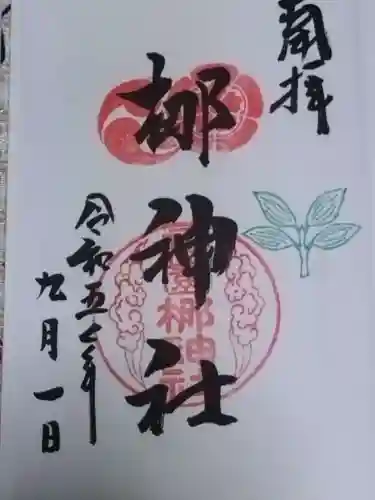 奉拝
梛神社
令和五年
九月一日
梛神社